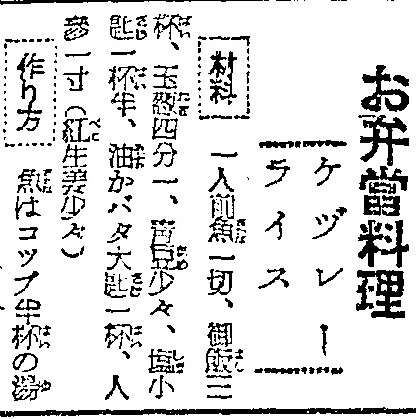 お弁當料理
ケヅレー
ライス
材料
一人前魚一切、御飯三
杯、玉葱四分一、青豆少々、塩小
匙一杯半、油かバタ大匙一杯、人
參一寸（紅生姜少々）
作り方
魚はコップ半杯の湯